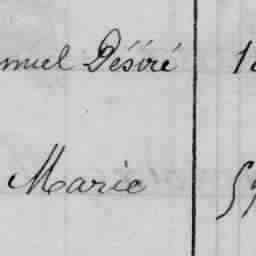 nuel Désiré 18
Marie 57